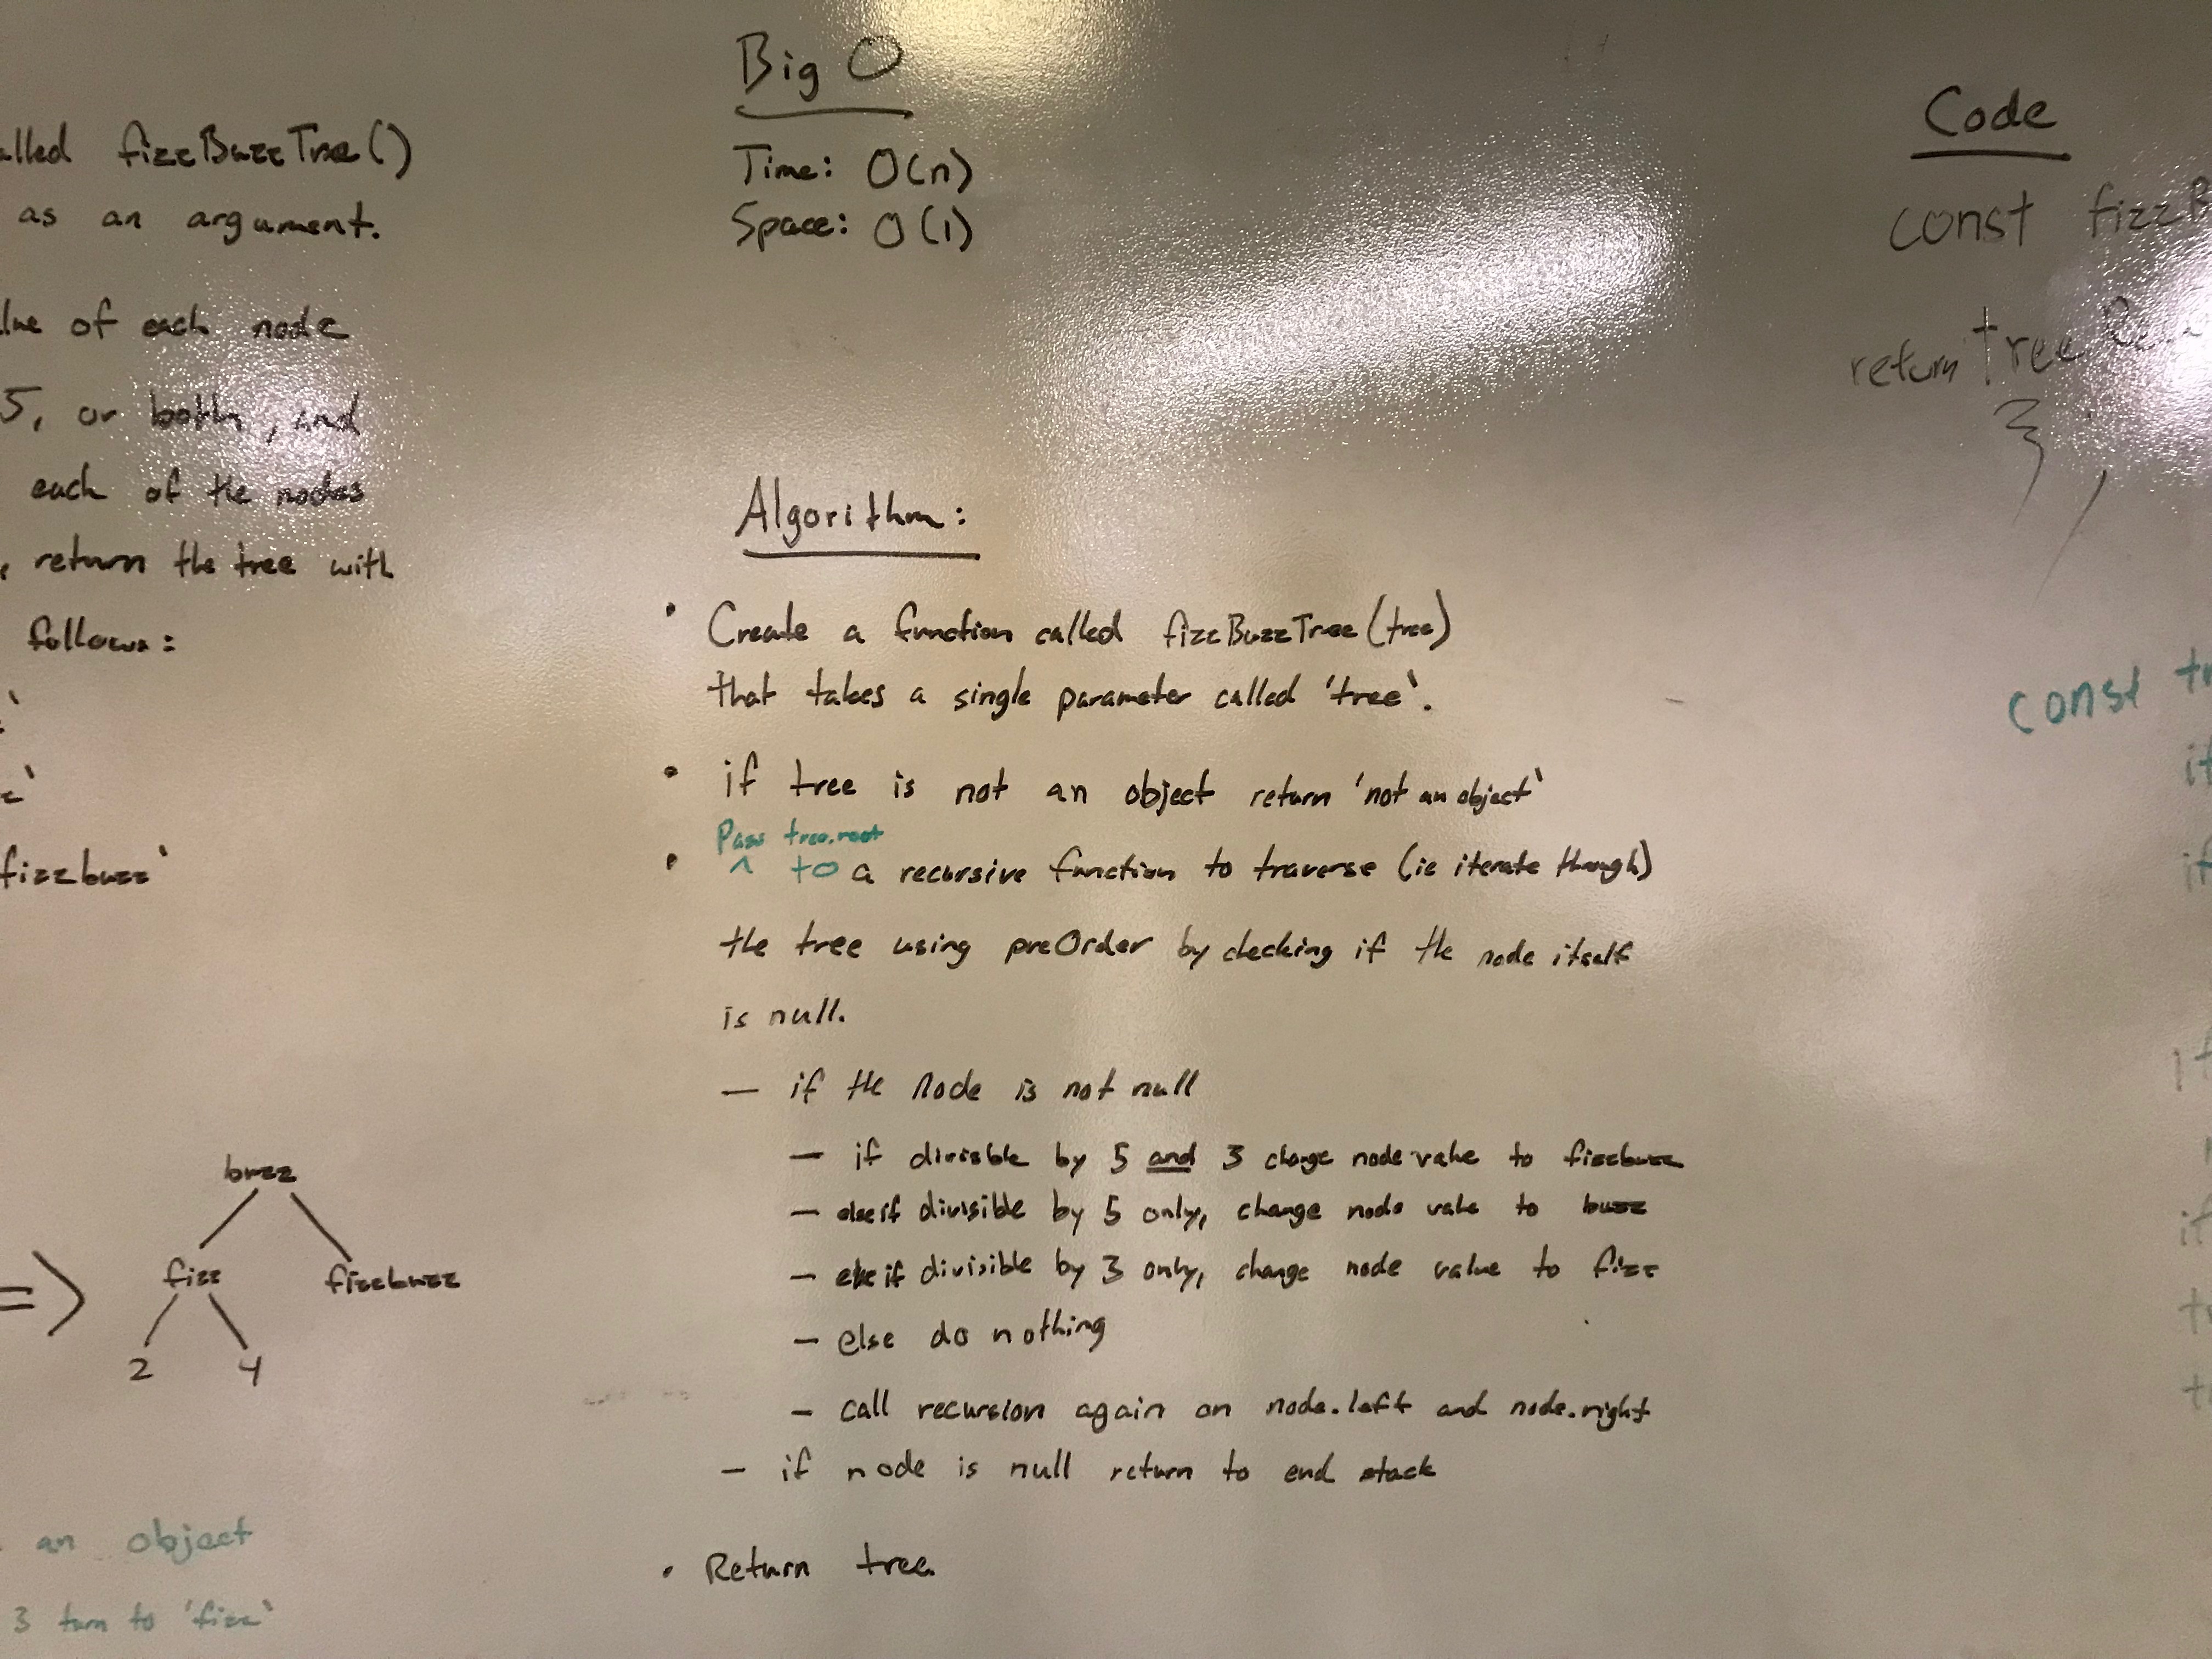 alled fizzBuzzTree()
as an argument.
lue of each node
5, or both, and
each of the nodes
return the tree with
follows:
fizzbuzz`
buzz
fizz fizzbuzz
=>
2 4
an object
3 turn to 'fizz`
Big O
Time: O(n)
Space: O(1)
Algorithm:
• Create a function called fizzBuzzTree(tree)
that takes a single parameter called 'tree`.
• if tree is not an object return 'not an object`
Pass tree.root
• ^ to a recursive function to traverse (ie iterate though)
the tree using preOrder by checking if the node itself
is null.
— if the node is not null
— if divisble by 5 and 3 change node value to fizzbuzz
— else if divisible by 5 only, change node value to buzz
— else if divisible by 3 only, change node value to fizz
— else do nothing
— call recursion again on node.left and node.right
— if node is null return to end stack
• Return tree.
Code
const fizzB
return tree
};
const tr
if
if
if
if
tr
t